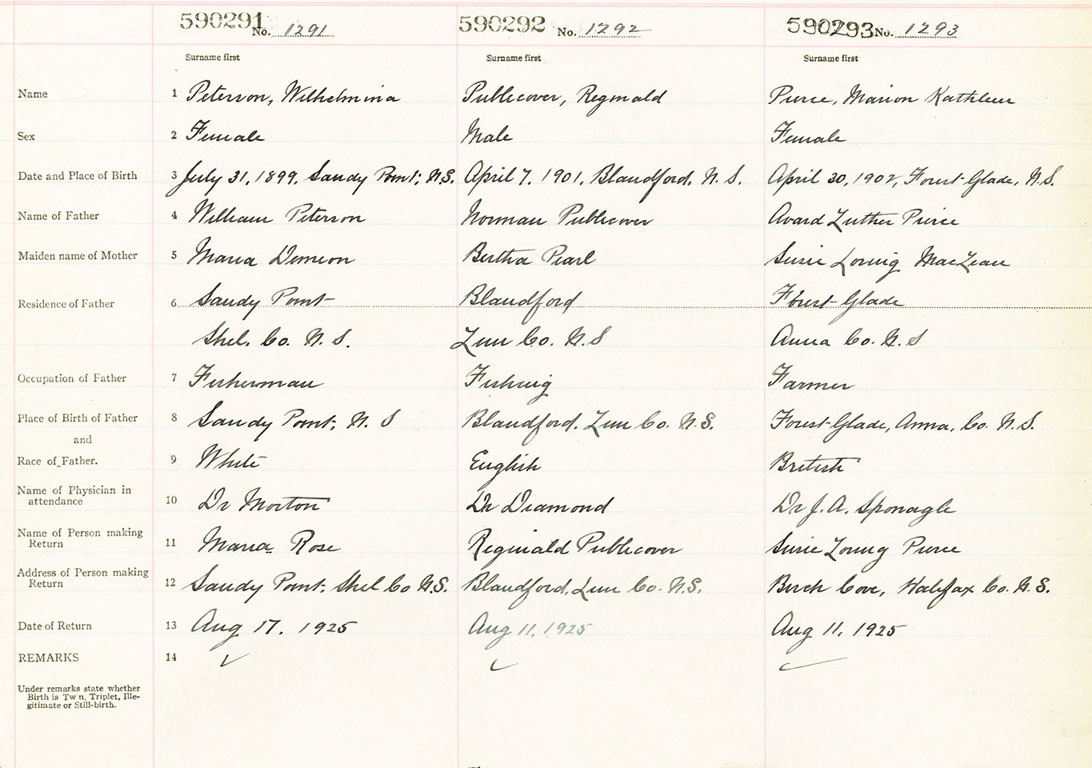 590291 No. 1291 590292 No. 1292 590293 No. 1293
Surname first Surname first Surname first
Name 1 Peterson, Wilhelmina Publicover, Reginald Pierce, Marion Kathleen
Sex 2 Female Male Female
Date and Place of Birth 3 July 31, 1899, Sandy Point, N.S. April 7, 1901, Blandford, N.S. April 30, 1902, Forest Glade, N.S.
Name of Father 4 William Peterson Norman Publicover Avard Luther Pierce
Maiden name of Mother 5 Maria Bertha Pearl Susie MacLean
Residence of Father 6 Sandy Point Blandford Forest Glade
Shel. Co. N.S. Lun Co. N.S Anna Co. N.S
Occupation of Father 7 Fisherman Fishing Farmer
Place of Birth of Father 8 Sandy Point, N.S Blandford, Lun Co. N.S. Forest Glade, Anna. Co. N.S.
and
Race of Father. 9 White English British
Name of Physician in
attendance 10 Dr Morton Dr Diamond Dr J. A. Sponagle
Name of Person making
Return 11 Maria Rose Reginald Publicover Susie Pierce
Address of Person making
Return 12 Sandy Point, Shel Co N.S. Blandford, Lun Co. N.S. Birch Cove, Halifax Co. N.S.
Date of Return 13 Aug 17, 1925 Aug 11, 1925 Aug 11, 1925
REMARKS 14 ✓ ✓ ✓
Under remarks state whether
Birth is Tw n, Triplet, Ille-
gitimate or Still-birth.